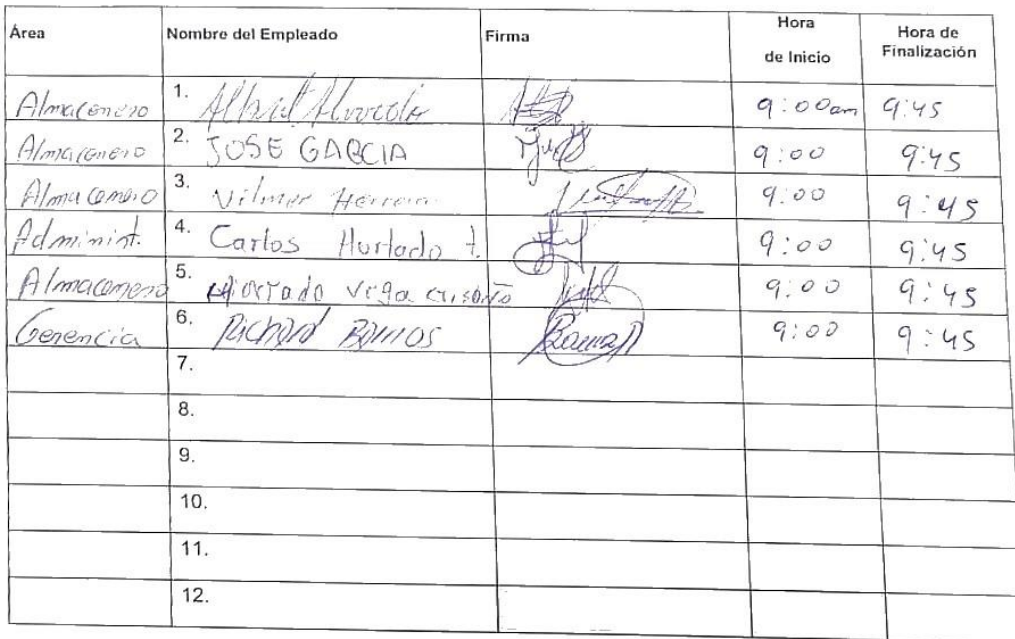 Área Nombre del Empleado Firma Hora de Inicio Hora de Finalización
Almacenero 1. Albert Alvarado 9:00am 9:45
Almacenero 2. JOSE GARCIA 9:00 9:45
Almacenero 3. Vilmer Herrera 9:00 9:45
Administ. 4. Carlos Hurtado t. 9:00 9:45
Almacenero 5. Hurtado vega 9:00 9:45
Gerencia 6. Richard Barrios 9:00 9:45
7.
8.
9.
10.
11.
12.